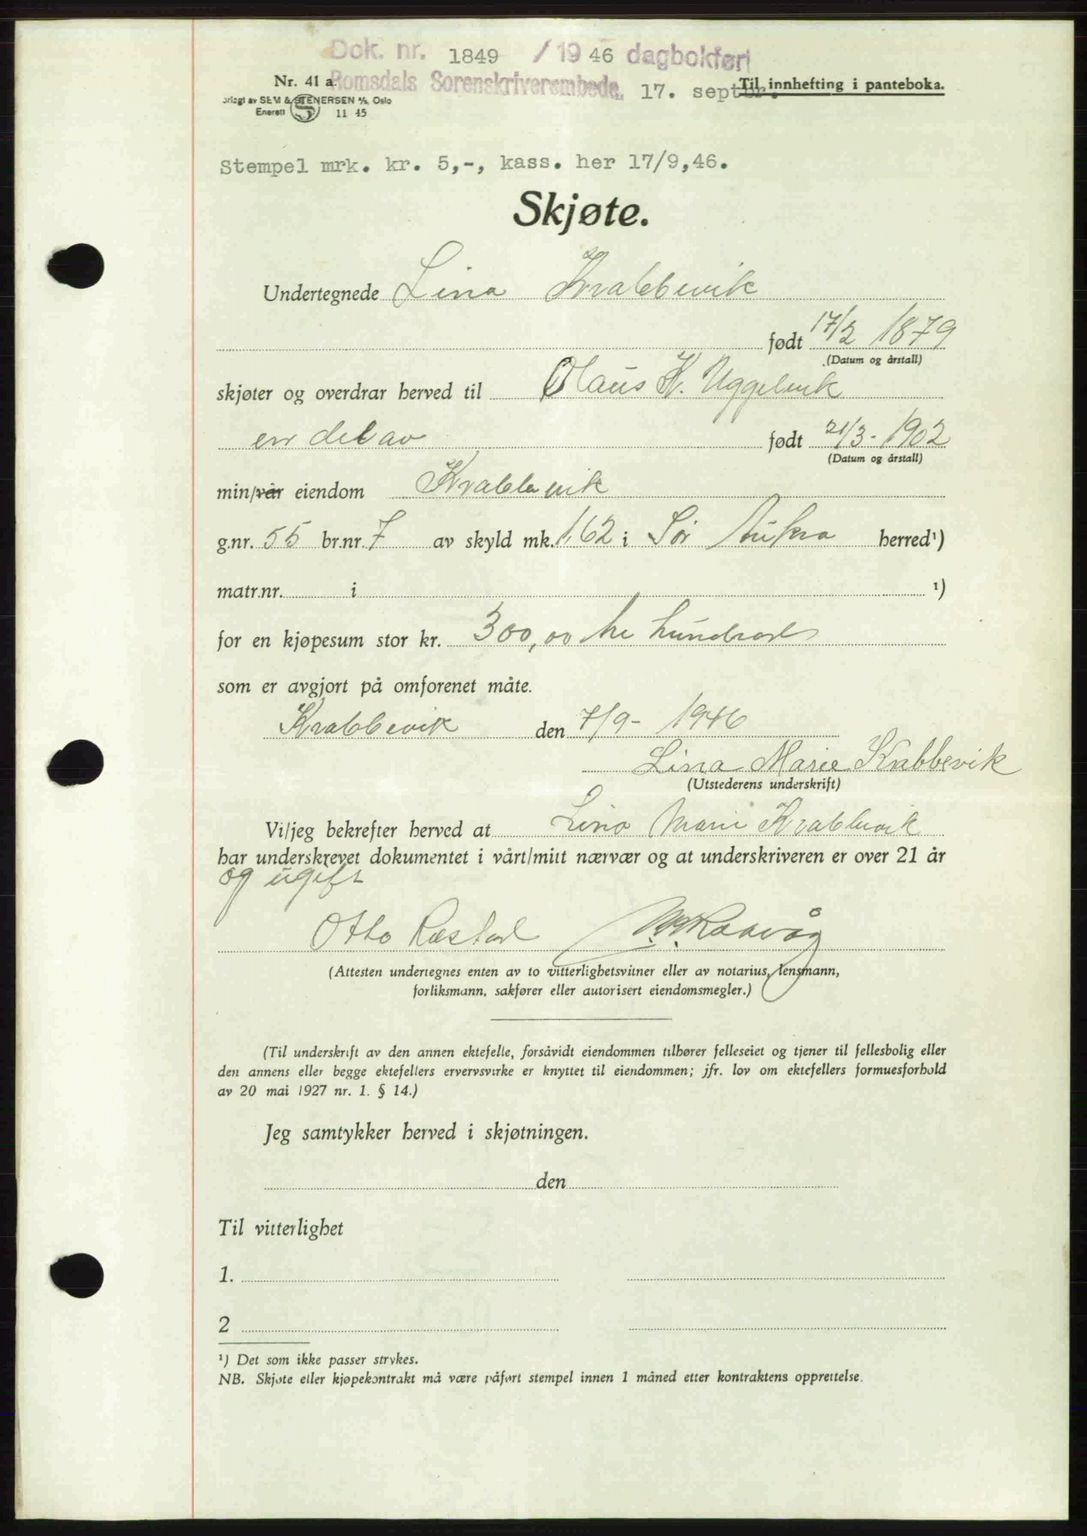 Dok. nr. 1849 / 19 46 dagbokført
Nr. 41 a Romsdals Sorenskriverembede, 17. septbr. Til innhefting i panteboka.
SEM & STENERSEN A/S, Oslo
Enerett 11 45
Stempel mrk. kr. 5,-, kass. her 17/9,46.
Skjøte.
Undertegnede Lina Krabbevik
født 17/2 1879
(Datum og årstall)
skjøter og overdrar herved til Olaus K. Uggelvik
en del av født 21/3 - 1902
(Datum og årstall)
min/vår eiendom Krabbevik
g.nr. 55 br.nr. 7 av skyld mk. 1,62 i Sør Aukra herred¹)
matr.nr. i ¹)
for en kjøpesum stor kr. 300,00 tre hundrede
som er avgjort på omforenet måte.
Krabbevik den 7/9 - 1946
Lina Marie Krabbevik
(Utstederens underskrift)
Vi/jeg bekrefter herved at Lina Marie Krabbevik
har underskrevet dokumentet i vårt/mitt nærvær og at underskriveren er over 21 år
og ugift
Otto Røstad
(Attesten undertegnes enten av to vitterlighetsvitner eller av notarius, lensmann,
forliksmann, sakfører eller autorisert eiendomsmegler.)
(Til underskrift av den annen ektefelle, forsåvidt eiendommen tilhører felleseiet og tjener til fellesbolig eller
den annens eller begge ektefellers ervervsvirke er knyttet til eiendommen; jfr. lov om ektefellers formuesforhold
av 20 mai 1927 nr. 1. § 14.)
Jeg samtykker herved i skjøtningen.
den
Til vitterlighet
1.
2
¹) Det som ikke passer strykes.
NB. Skjøte eller kjøpekontrakt må være påført stempel innen 1 måned etter kontraktens opprettelse.